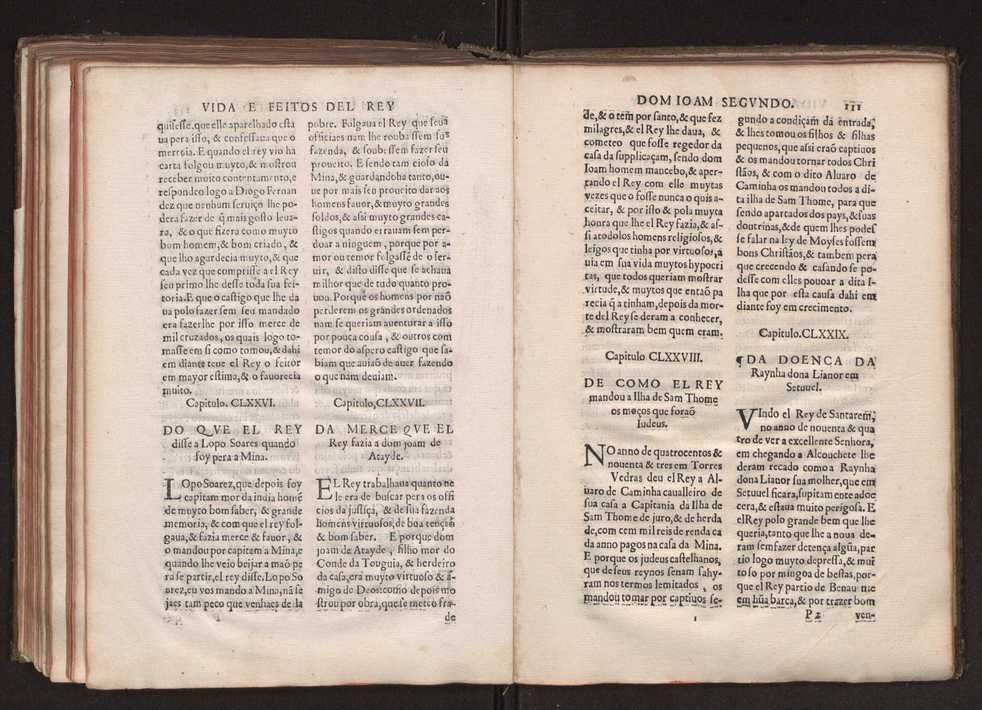 VIDA E FEITOS DEL REY
quisesse.que elle aparelhado està
ua pera isso, & confessaua que o
mereçia. E quando el rey vio ha
carta folgou muyto, & mostrou
receber muito contentamento, e
respondeo logo a Diogo Fernan
dez que nenhum seruiço lhe po-
dera fazer de q̃ mais gosto leua-
ra, & o que fizera como muyto
bom homem, & bom criado, &
que lho agardecia muyto, & que
cada vez que comprisse a el Rey
seu primo lhe desse toda sua fei-
toria. E que o castigo que lhe da
ua polo fazer sem seu mandado
era fazerlhe por isso merce de
mil cruzados, os quais logo to-
masse em si como tomou, & dahi
em diante teue el Rey o feitor
em mayor estima, & o fauorecia
muito.
Capitulo. CLXXVI.
DO QVE EL REY
disse a Lopo Soares quando
foy pera a Mina.
LOpo Soarez, que depois foy
capitam mor da india homẽ
de muyto bom saber, & grande
memoria, & com que el rey fol-
gaua, & fazia merce & fauor, &
o mandou por capitem a Mina, e
quando lhe veio beijar a maõ pe
ra se partir, el rey disse. Lopo So
arez, eu vos mando a Mina, nã se
jaes tam peco que venhaes de la
pobre. Folgaua el Rey que seus
officiaes nam lhe roubassem sua
fazenda, & soubessem fazer seu
proueito. E sendo tam cioso da
Mina, & guardandoha tanto, ou-
ue por mais seu proueito dar aos
homens fauor, & muyto grandes
soldos, & assi muyto grandes ca-
stigos quando errauam sem per-
doar a ninguem, porque por a-
mor ou temor folgassẽ de o ser-
uir, & disto disse que se achaua
milhor que de tudo quanto pro-
uou. Porque os homens por naõ
perderem os grandes ordenados
nam se queriam auenturar a isso
por pouca cousa, & outros com
temor do aspero castigo que sa-
biam que auiaõ de auer fazendo
o que nam deuiam.
Capitulo, CLXXVII.
DA MERCE QVE EL
Rey fazia a dom joam de
Atayde.
EL Rey trabalhaua quanto ne
le era de buscar pera os offi
cios da justiça, & de sua fazenda
homens virtuosos, de boa tençaõ
& bom saber. E porque dom
joam de Atayde, filho mor do
Conde da Touguia, & herdeiro
da casa, era muyto virtuoso & a-
migo de Deos: como depois mo
strou por obra, que se meteo fra-
de
DOM IOAM SEGVNDO. 111
de, & o tẽm por santo, & que fez
milagres, & el Rey lhe daua, &
cometeo que fosse regedor da
casa da supplicaçam, sendo dom
Ioam homem mancebo, & aper-
tando el Rey com elle muytas
vezes que o fosse nunca o quis a-
ceitar, & por isto & pola muyta
honra que lhe el Rey fazia, & as-
si a todolos homens religiosos, &
leigos que tinha por virtuosos, a
uia em sua vida muytos hypocri
tas, que todos queriam mostrar
virtude, & muytos que entaõ pa
recia q̃ a tinham, depois da mor-
te del Rey se deram a conhecer,
& mostraram bem quem eram.
Capitulo CLXXVIII.
DE COMO EL REY
mandou a Ilha de Sam Thome
os moços que foraõ
Iudeus.
NO anno de quatrocentos &
nouenta & tres em Torres
Vedras deu el Rey a Al-
uaro de Caminha caualleiro de
sua casa a Capitania da Ilha de
Sam Thome de juro, & de herda
de, com cem mil reis de renda ca
da anno pagos na casa da Mina.
E porque os judeus castelhanos,
que de seus reynos senam sahy-
ram nos termos lemitados, os
mandou tomar por captiuos se-
gundo a condiçam da entrada,
& lhes tomou os filhos & filhas
pequenos, que assi eraõ captiuos
& os mandou tornar todos Chri
stãos, & com o dito Aluaro de
Caminha os mandou todos a di-
ta ilha de Sam Thome, para que
sendo apartados dos pays, & suas
doutrinas, & de quem lhes podes
se falar na ley de Moyses fossem
bons Christãos, & tambem pera
que crecendo & casando se po-
desse com elles pouoar a dita I-
lha que por esta causa dahi em
diante foy em crecimento.
Capitulo. CLXXIX.
¶DA DOENCA DA
Raynha dona Lianor em
Setuuel.
VIndo el Rey de Santarem,
no anno de nouenta & qua
tro de ver a excellente Senhora,
em chegando a Alcouchete lhe
deram recado como a Raynha
dona Lianor sua molher, que em
Setuuel ficara, supitamente adoe
cera, & estaua muito perigosa. E
el Rey polo grande bem que lhe
queria, tanto que lhe a noua de-
ram sem fazer detença algũa, par
tio logo muyto depressa, & mui
to so por mingoa de bestas, por-
que el Rey partio de Benauente
em hũa barca, & por trazer bom
P2 ven-